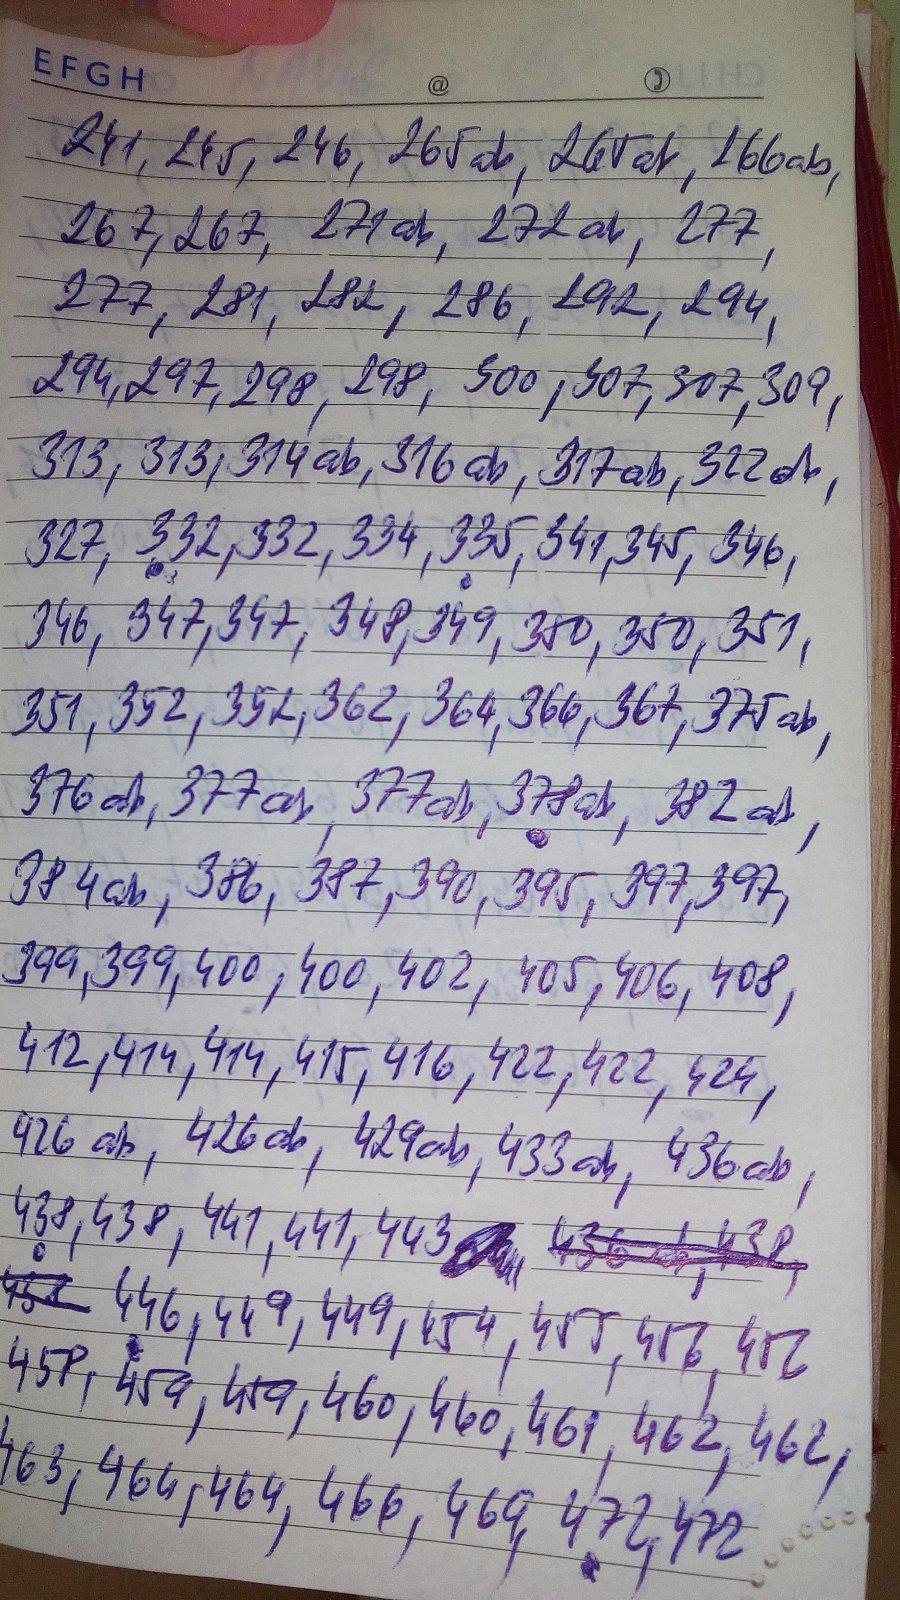 EFGH @ ✆
241, 245, 246, 265ab, 265ab, 266ab,
267, 267, 271ab, 272ab, 277,
277, 281, 282, 286, 292, 294,
294, 297, 298, 298, 300, 307, 307, 309,
313, 313, 314ab, 316ab, 317ab, 322ab,
327, 332, 332, 334, 335, 341, 345, 346,
346, 347, 347, 348, 349, 350, 350, 351,
351, 352, 352, 362, 364, 366, 367, 375ab,
376ab, 377ab, 377ab, 378ab, 382ab,
384ab, 386, 387, 390, 395, 397, 397,
399, 399, 400, 400, 402, 405, 406, 408,
412, 414, 414, 415, 416, 422, 422, 424,
426ab, 426ab, 429ab, 433ab, 436ab,
438, 438, 441, 441, 443 436ab, 438,
446, 449, 449, 454, 455, 456, 456
458, 459, 459, 460, 460, 461, 462, 462,
463, 464, 464, 466, 469, 472, 472